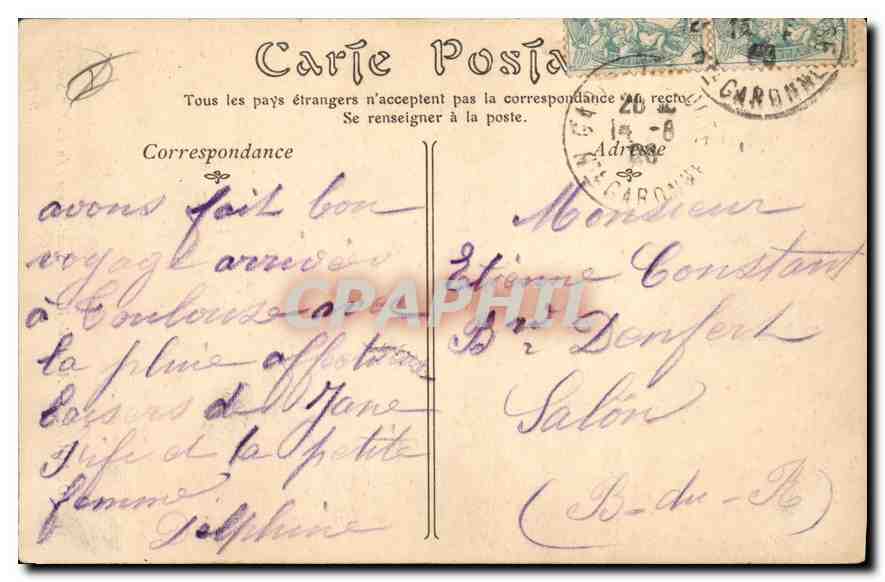 Carte Posta
Tous les pays étrangers n'acceptent pas la correspondance au recto
Se renseigner à la poste.
Correspondance
avons fait bon
voyage arrivée
à Toulouse avec
la pluie affectueux
baisers de Jane
Fife de la petite
femme
Delphine
Adresse
Monsieur
Etienne Constant
Bd Denfert
Salon
(B-du-R)
20
14 -8
GARONNE
GARONNE
CPAPHIL